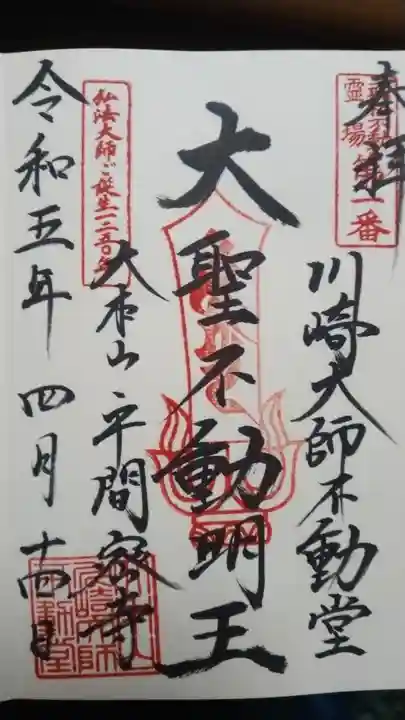 奉拝
霊場第一番
川崎大師不動堂
大聖不動明王
大本山平間密寺
弘法大師ご誕生一二五〇年
令和五年四月十四日